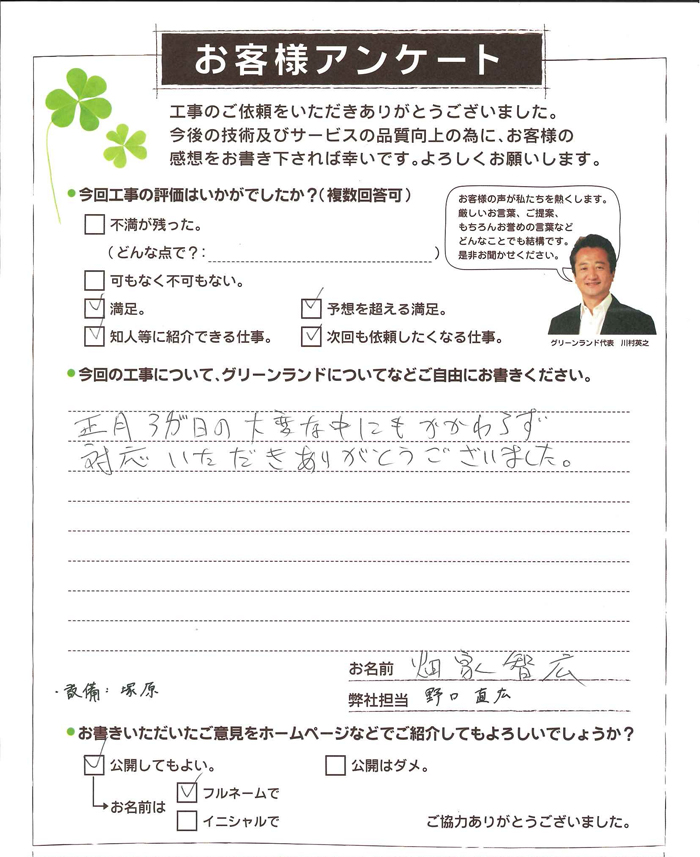 お客様アンケート
工事のご依頼をいただきありがとうございました。
今後の技術及びサービスの品質向上の為に、お客様の
感想をお書き下されば幸いです。よろしくお願いします。
今回工事の評価はいかがでしたか?(複数回答可)
不満が残った。
(どんな点で?: )
可もなく不可もない。
満足。
予想を超える満足。
知人等に紹介できる仕事。
次回も依頼したくなる仕事。
お客様の声が私たちを熱くします。
厳しいお言葉、ご提案、
もちろんお誉めの言葉など
どんなことでも結構です。
是非お聞かせください。
グリーンランド代表 川村英之
今回の工事について、グリーンランドについてなどご自由にお書きください。
正月3が日の大変な中にもかかわらず
対応いただきありがとうございました。
お名前 畑家智広
・設備:塚原
弊社担当 野口直広
お書きいただいたご意見をホームページなどでご紹介してもよろしいでしょうか?
公開してもよい。
公開はダメ。
お名前は
フルネームで
イニシャルで
ご協力ありがとうございました。